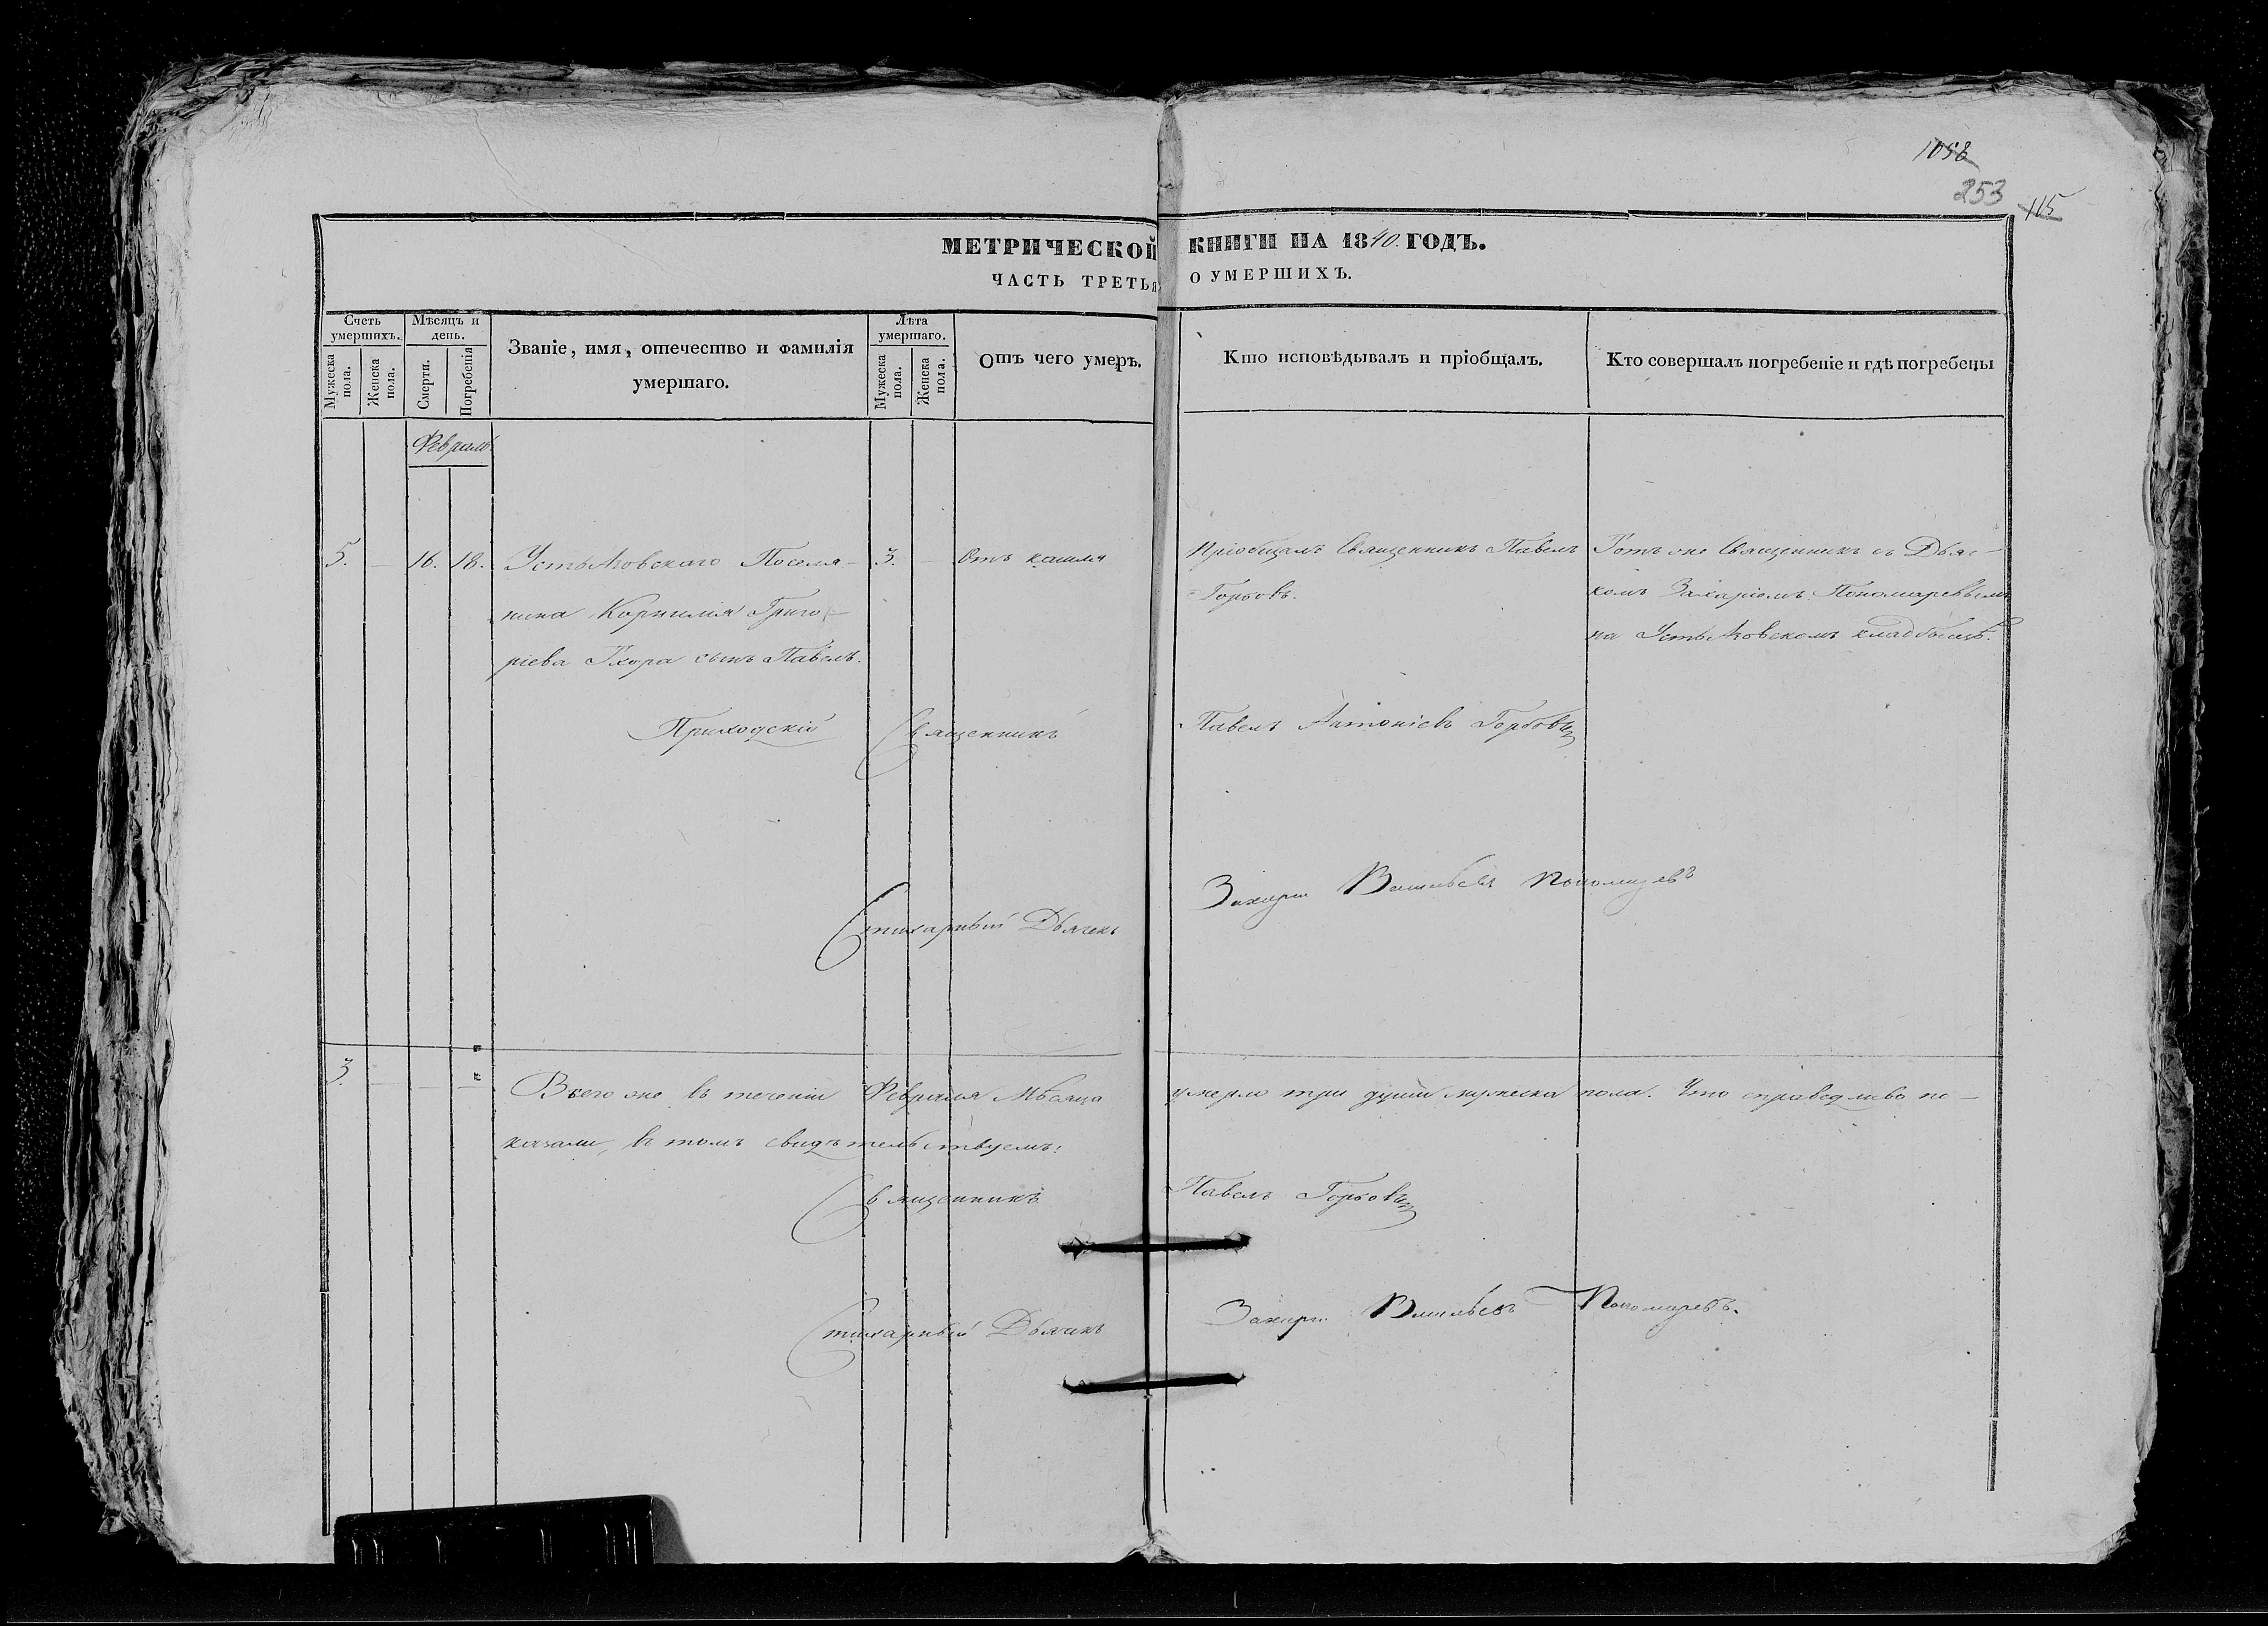 1058
253
115
МЕТРИЧЕСКОЙ КНИГИ НА 1840 ГОДЪ.
ЧАСТЬ ТРЕТЬЯ О УМЕРШИХЪ.
Счетъ умершихъ.
Мужеска пола.
Женска пола.
Мѣсяцъ и день.
Смерти.
Погребенія
Званіе, имя, отечество и фамилія умершаго.
Лѣта умершаго.
Мужеска пола.
Женска пола.
Отъ чего умеръ.
Кто исповѣдывалъ и пріобщалъ.
Кто совершалъ погребеніе и гдѣ погребены
Февраль
5. — 16. 18. Усть Азовскаго Поселя- 3. — Отъ кашля Пріобщалъ Священникъ Павелъ Тотъ же Священникъ съ Дьяч-
нина Корнилія Григо- Горбовъ. комъ Захаріемъ Пономаревымъ
ріева Тхора сынъ Павелъ. на Усть Азовскомъ кладбищѣ.
Приходскій Священникъ Павелъ Антоніевъ Горбовъ
Стихарный Дьячекъ Захарій Васильевъ Пономаревъ
3. — — — Всего же въ теченіи Февраля Мѣсяца умерло три души мужеска пола. Что справедливо по-
казали, въ томъ свидѣтельствуемъ:
Священникъ Павелъ Горбовъ
Стихарный Дьячекъ Захарій Васильевъ Пономаревъ.